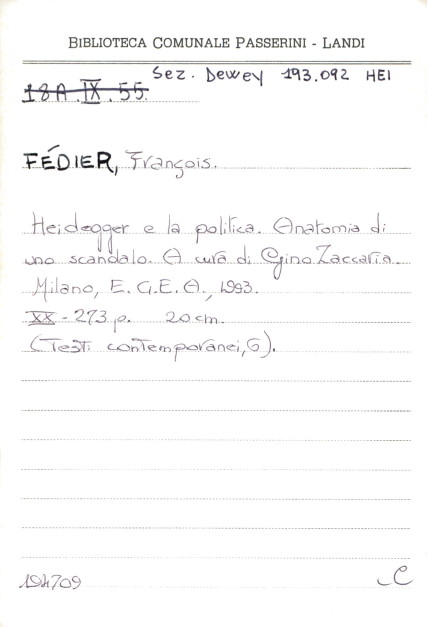 BIBLIOTECA COMUNALE PASSERINI - LANDI
Sez. Dewey 193.092 HEI
18A.IX.55.
FÉDIER, François.
Heidegger e la politica. Anatomia di
uno scandalo. A cura di Gino Zaccaria.
Milano, E.G.E.A., 1993.
XX - 273 p. 20 cm.
(Testi contemporanei, 6).
194709
C